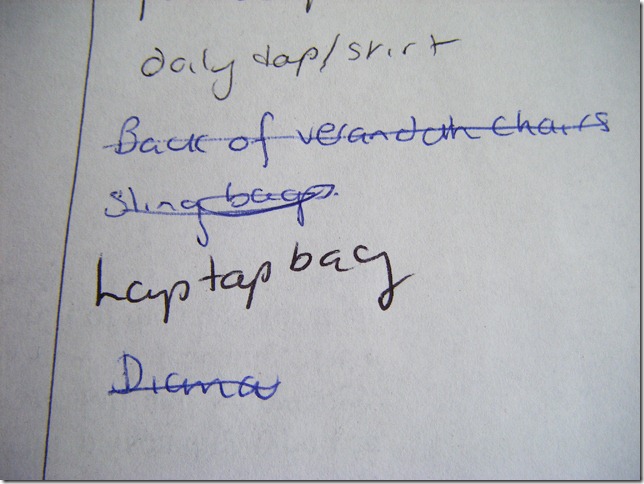 daily dap/skirt
Back of verandah chairs
sling bags.
Laptap bag
Diana